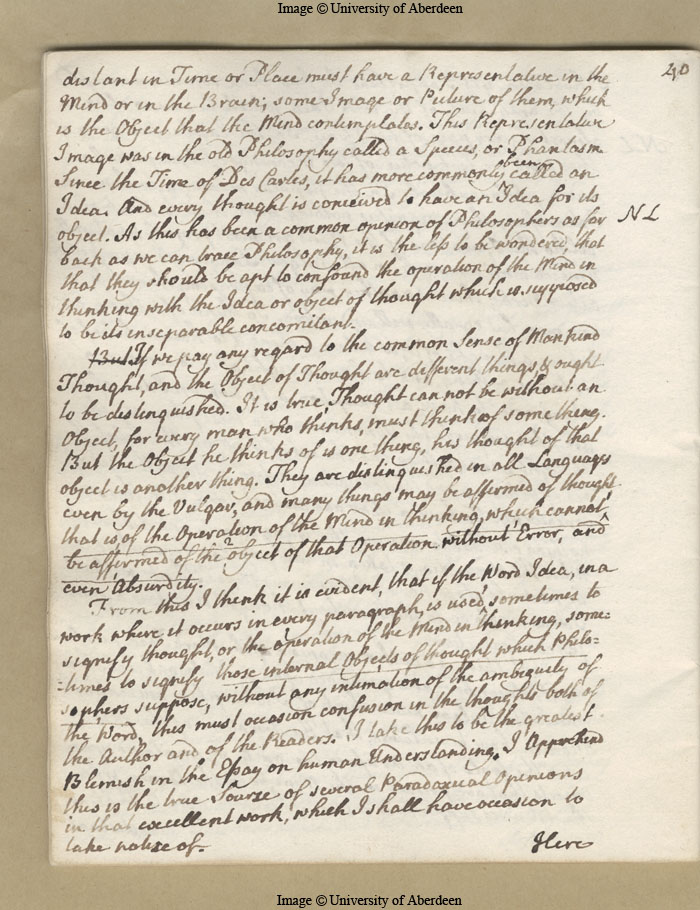 Image © University of Aberdeen
40
distant in Time or Place must have a Representative in the
Mind or in the Brain; some Image or Picture of them, which
is the Object that the Mind contemplates. This Representative
Image was in the old Philosophy called a Species, or Phantasm
Since the Time of Des Cartes, it has more commonly been called an
Idea. And every thought is conceived to have an Idea for its
object. As this has been a common opinion of Philosophers as far NL
back as we can trace Philosophy, it is the less to be wondered, that
that they should be apt to confound the operation of the Mind in
thinking with the Idea or object of thought which is supposed
to be its inseparable concomitant.
But If we pay any regard to the common Sense of Mankind
Thought, and the Object of Thought are different things, & ought
to be distinguished. It is true, Thought can not be without an
Object, for every man who thinks, must think of some thing.
But the Object he thinks of is one thing, his thought of that
object is another thing. They are distinguished in all Languages
even by the Vulgar, and many things may be affirmed of thought
that is of the Operation of the Mind in thinking, which cannot
be affirmed of the object of that Operation without Error, and
even Absurdity.
From this I think it is evident, that if the Word Idea, in a
work where it occurs in every paragraph, is used, sometimes to
signify thought, or the operation of the Mind in thinking, some=
=times to signify those internal Objects of thought which Philo=
sophers suppose, without any intimation of the ambiguity of
the Word, this must occasion confusion in the thoughts both of
the Author and of the Readers. I take this to be the greatest
Blemish in the Essay on human Understanding. I Apprehend
this is the true Sourse of several Paradoxical Opinions
in that excellent work, which I shall have occasion to
take notice of.
Here
Image © University of Aberdeen